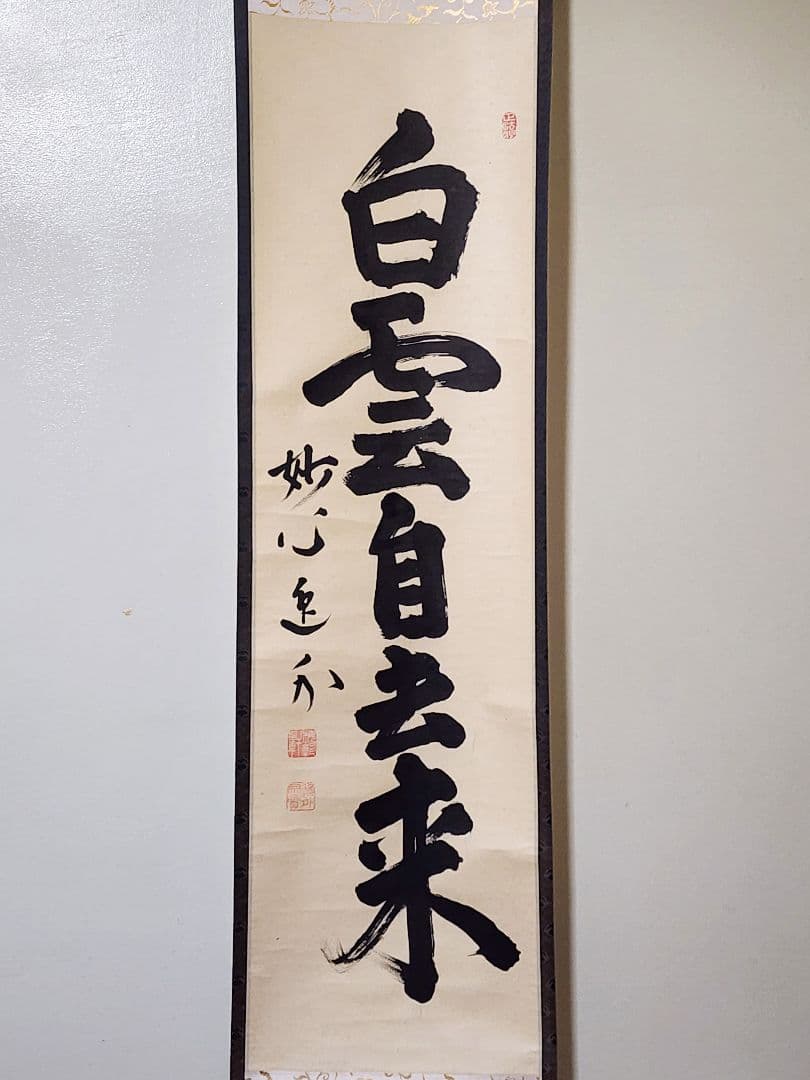 白雲自去来
妙心